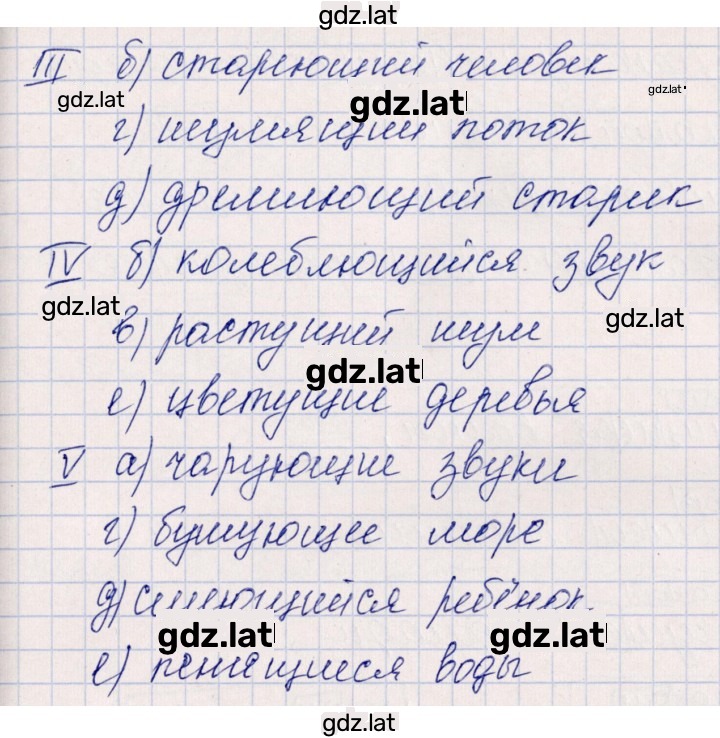 gdz.lat
III б) стареющий человек
gdz.lat gdz.lat gdz.lat
г) шумящий поток
д) дремлющий старик
IV б) колеблющийся звук
gdz.lat gdz.lat
в) растущий шум
gdz.lat
е) цветущие деревья
V а) чарующие звуки
г) бушующее море
д) смеющийся ребёнок.
gdz.lat gdz.lat
е) пенящиеся воды
gdz.lat